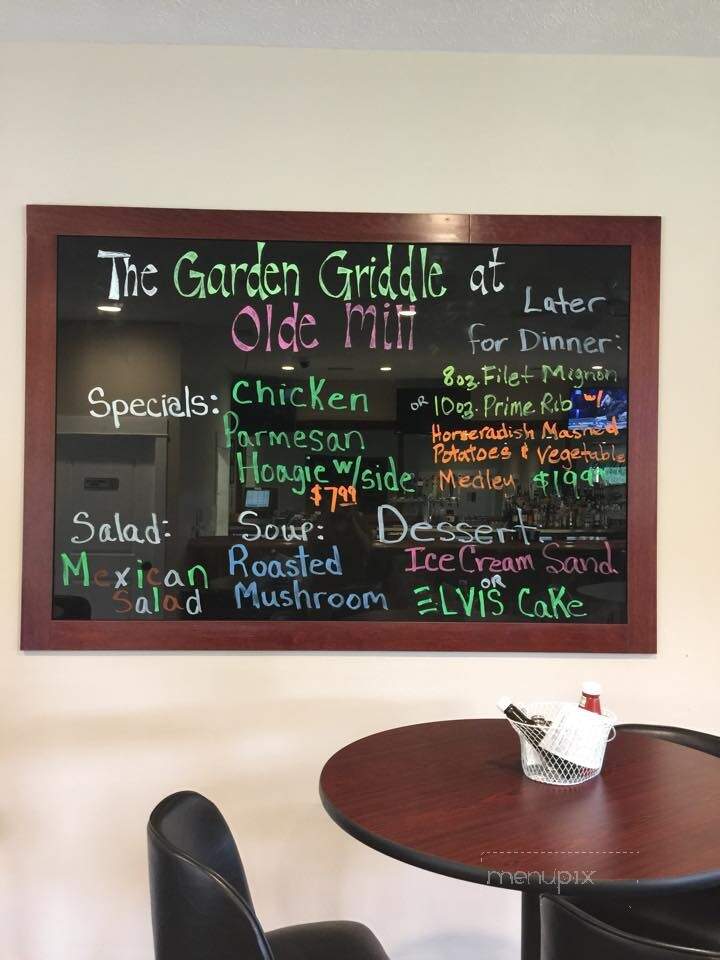 The Garden Griddle at
Olde Mill
Specials: Chicken
Parmesan
Hoagie w/side
$7.99
Later
for Dinner:
8oz. Filet Mignon
OR 10oz. Prime Rib w/
Horseradish Mashed
Potatoes & Vegetable
Medley $19.99
Salad:
Mexican
Salad
Soup:
Roasted
Mushroom
Dessert:
Ice Cream Sand
OR
ELVIS Cake
menupix